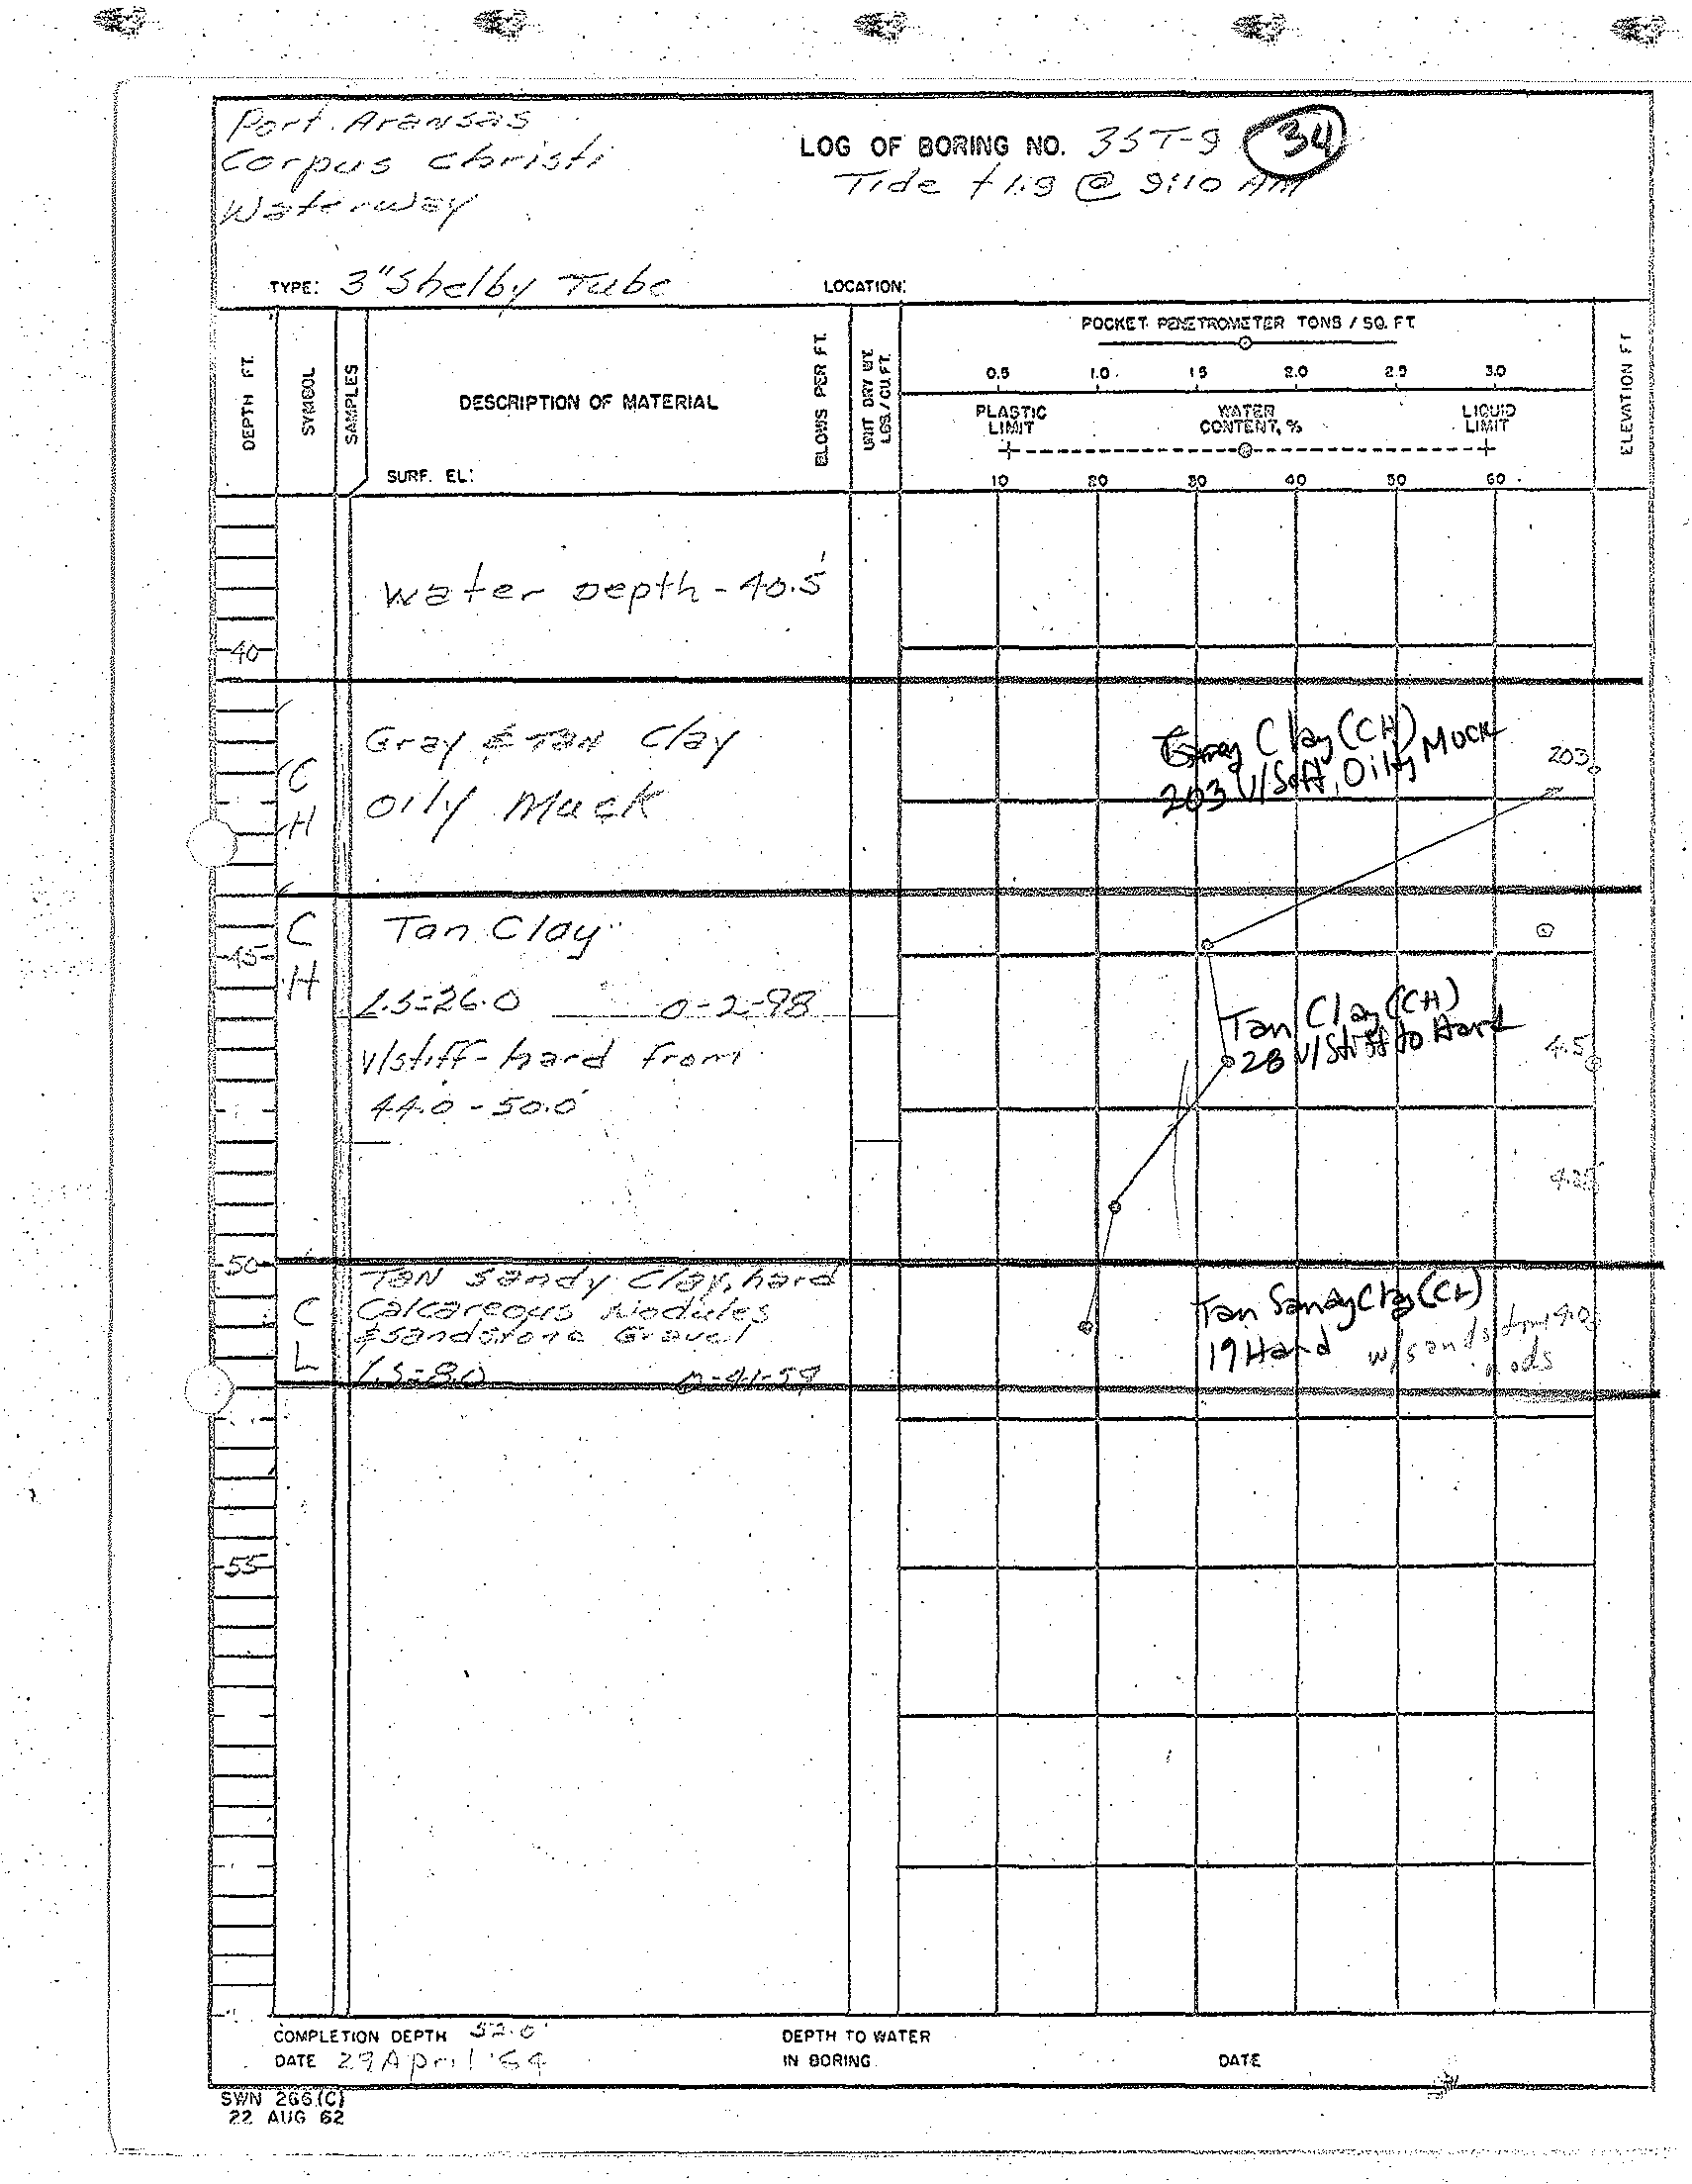 Port Aransas
Corpus Christi
Waterway
LOG OF BORING NO. 3ST-9 34
Tide +1.9 @ 9:10 AM
TYPE: 3" Shelby Tube
LOCATION:
DEPTH FT.
SYMBOL
SAMPLES
DESCRIPTION OF MATERIAL
SURF. EL:
BLOWS PER FT.
UNIT DRY WT.
LBS./CU.FT.
POCKET PENETROMETER TONS / SQ. FT.
0.5 1.0 1.5 2.0 2.5 3.0
PLASTIC LIMIT
WATER CONTENT, %
LIQUID LIMIT
10 20 30 40 50 60
ELEVATION FT
Water Depth - 40.5'
40
CH
Gray & Tan Clay
Oily Muck
Gray Clay (CH)
203 V/Soft, Oily Muck
203
CH
Tan Clay
45
L.S=26.0 0-2-98
V/stiff-hard from
44.0 - 50.0'
Tan Clay (CH)
28 V/Stiff to Hard
4.5
4.25
50
CL
Tan Sandy Clay, hard
Calcareous Nodules
& Sandstone Gravel
L.S=8.0 0-41-59
Tan Sandy Clay (CL)
19 Hard w/sandstone
nods
55
COMPLETION DEPTH 52.0'
DATE 29 April '64
DEPTH TO WATER
IN BORING
DATE
SWN 266(C)
22 AUG 62